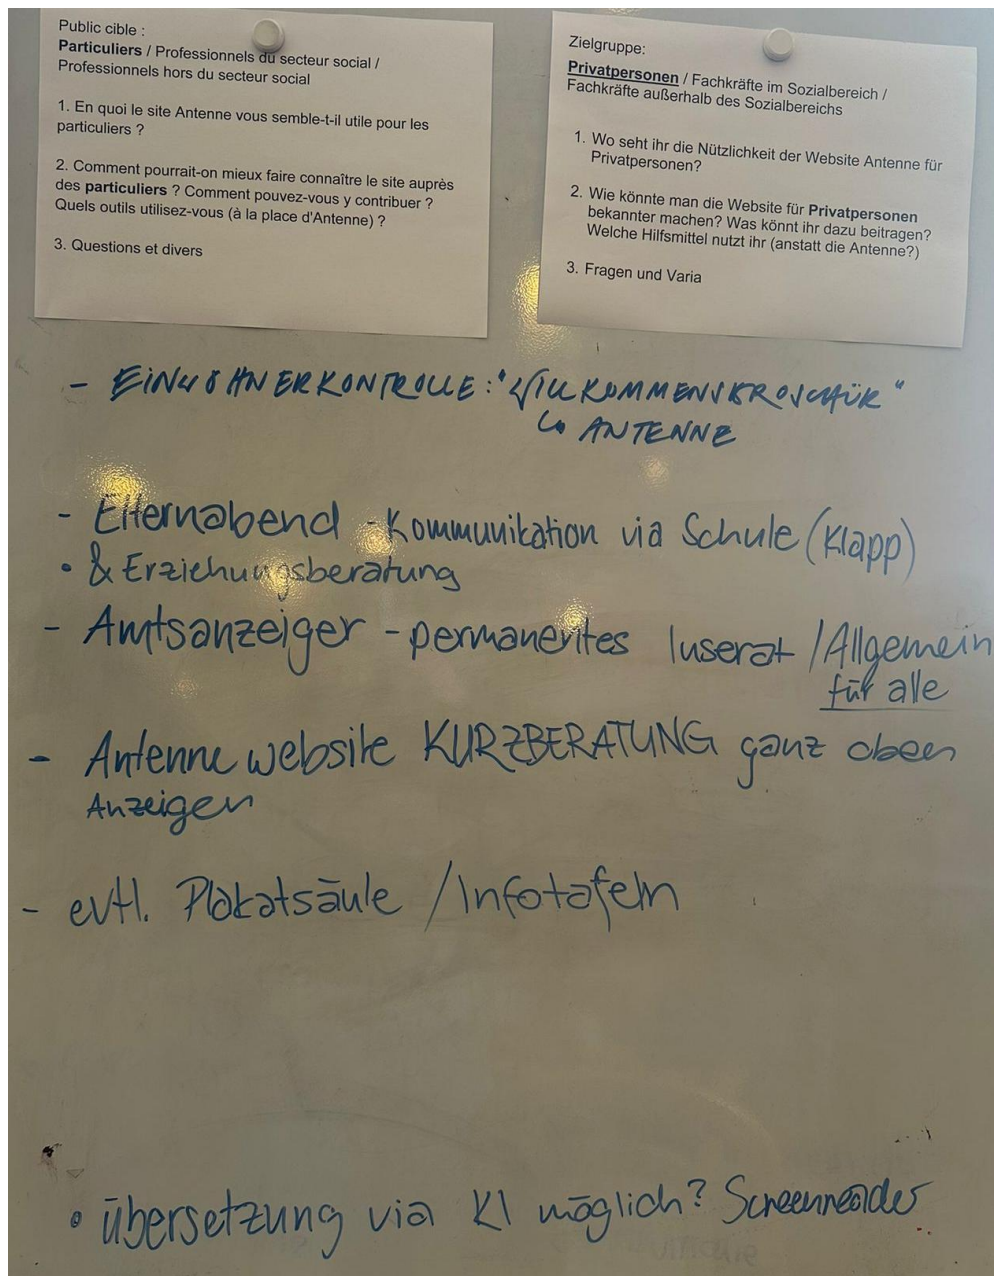 Public cible :
Particuliers / Professionnels du secteur social /
Professionnels hors du secteur social
1. En quoi le site Antenne vous semble-t-il utile pour les
particuliers ?
2. Comment pourrait-on mieux faire connaître le site auprès
des particuliers ? Comment pouvez-vous y contribuer ?
Quels outils utilisez-vous (à la place d'Antenne) ?
3. Questions et divers
Zielgruppe:
Privatpersonen / Fachkräfte im Sozialbereich /
Fachkräfte außerhalb des Sozialbereichs
1. Wo seht ihr die Nützlichkeit der Website Antenne für
Privatpersonen?
2. Wie könnte man die Website für Privatpersonen
bekannter machen? Was könnt ihr dazu beitragen?
Welche Hilfsmittel nutzt ihr (anstatt die Antenne?)
3. Fragen und Varia
- EINWOHNERKONTROLLE: "WILLKOMMENSBROSCHÜR"
↳ ANTENNE
- Elternabend - Kommunikation via Schule (Klapp)
• & Erziehungsberatung
- Amtsanzeiger - permanentes Inserat / Allgemein
für alle
- Antenne website KURZBERATUNG ganz oben
Anzeigen
- evtl. Plakatsäule / Infotafeln
• übersetzung via KI möglich? Screenreader